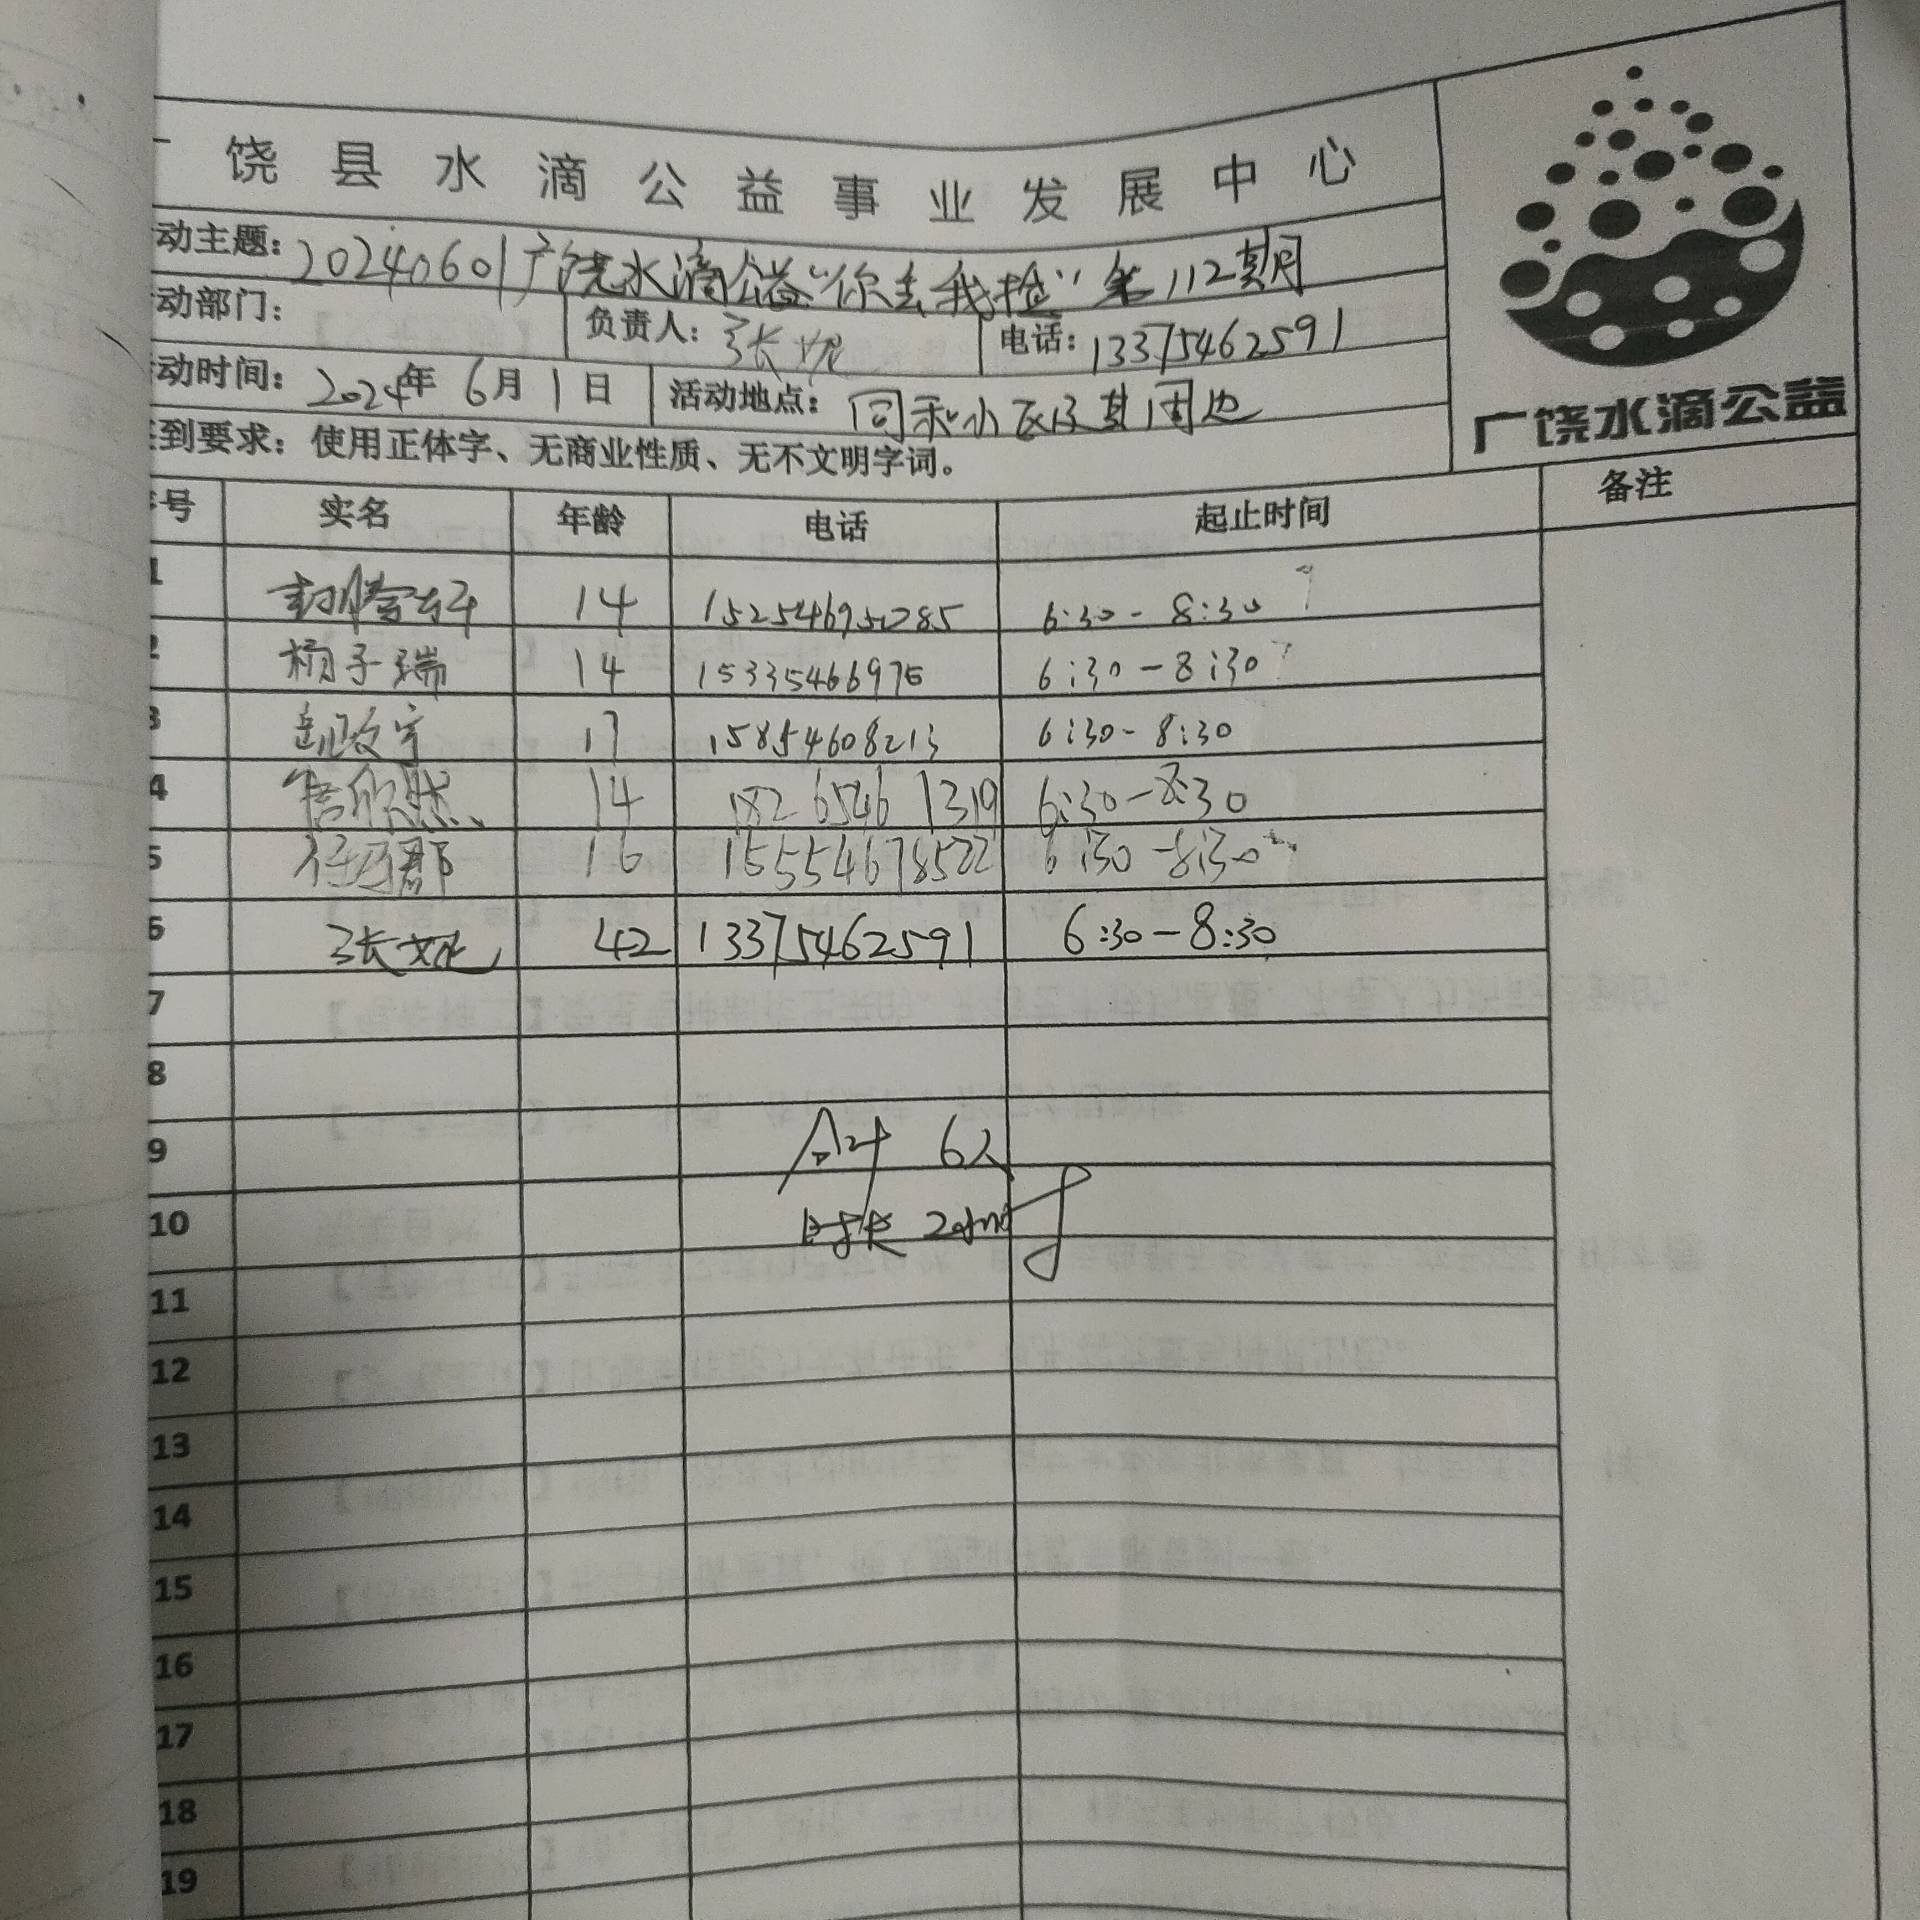 饶县水滴公益事业发展中心
动主题：20240601广饶水滴公益“你丢我捡”第112期
动部门： 负责人：张妮 电话：13375462591
动时间：2024年6月1日 活动地点：同和小区及其周边
到要求：使用正体字、无商业性质、无不文明字词。
广饶水滴公益
号 实名 年龄 电话 起止时间 备注
1 14 6:30-8:30
2 杨子瑞 14 15335466976 6:30-8:30
3 17 15854608213 6:30-8:30
4 信欣然 14 182 6546 1319 6:30-8:30
5 16 15554678522 6:30-8:30
6 张妮 42 13375462591 6:30-8:30
7
8
9 合计 6人
10 时长 2小时
11
12
13
14
15
16
17
18
19